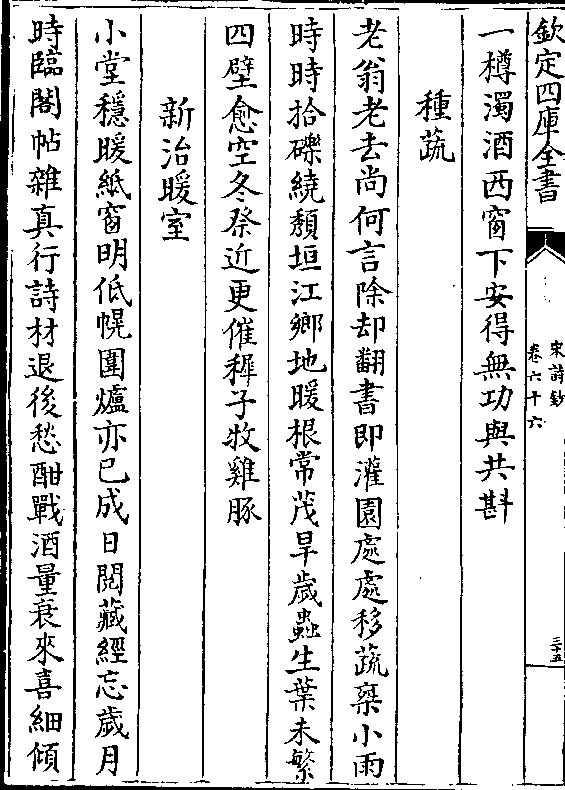 欽定四庫全書
宋詩鈔
卷六十六
三十五
一樽濁酒西窗下安得無功與共斟
種蔬
老翁老去尚何言除却翻書即灌園處處移蔬乘小雨
時時拾礫繞頹垣江鄉地暖根常茂旱歲蟲生葉未繁
四壁愈空冬祭近更催稺子牧雞豚
新治暖室
小堂穩暖紙窗明低幌圍爐亦已成日閱藏經忘歲月
時臨閣帖雜真行詩材退後愁酣戰酒量衰來喜細傾